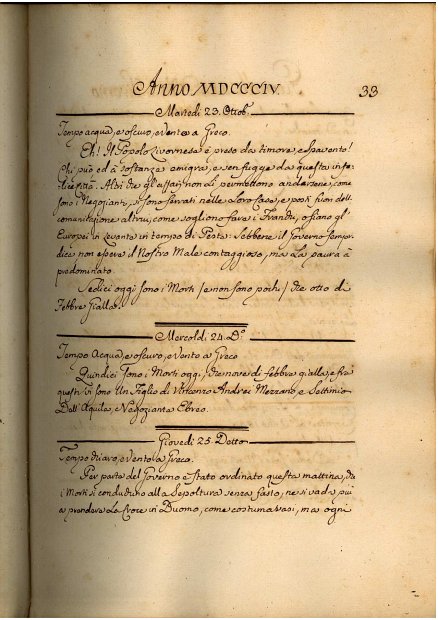 Anno MDCCCIV. 33
Martedi 23. Ottob.
Tempo acqua, e oscuro, e vento a Greco.
Eh! Il Popolo Livornese è preso da timore, e spavento!
Chi può ed à sostanza emigra, e sen fugge da questa infe-
licità. Altri che gl'affari non di permettono andarsene, come
sono i Negozianti, si sono serrati nelle Loro Case, e posti fuori dell
comunicazione altrui, come sogliono fare i Franchi, o siano gl'
Europei in Levante in tempo di Peste: Sebbene il Governo sempre
dica non essere il Nostro Male contaggioso, ma La paura à
predominato.
Sedici oggi sono i Morti /e non sono pochi/ che otto di
Febbre Gialla.
Mercoldi 24. Do.
Tempo Acqua, e oscuro, e Vento a Greco
Quindici sono i Morti oggi, che nove di febbre gialla, e fra
questi vi sono Un Figlio di Vincenzo Andrei Mezzano, e Settimio
Dell'Aquila, e Negoziante Ebreo.
Giovedi 25. Detto
Tempo chiaro, e Vento a Greco.
Per parte del Governo è stato ordinato questa mattina, che
i Morti si conduchino alla Sepoltura senza fasto, ne si vada più
a prendere La Croce in Duomo, come costumavasi, ma ogni